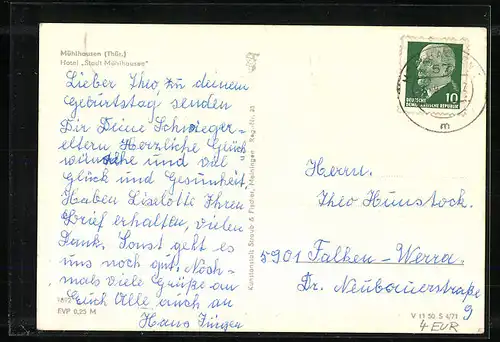 Mühlhausen (Thür.)
Hotel „Stadt Mühlhausen"
Lieber Theo zu deinem
Geburtstag senden
Dir Deine Schwieger-
eltern Herzliche Glück
wünsche und viel
glück und Gesunheit.
Haben Liselotte Ihren
Brief erhalten, vielen
Dank. Sonst geht es
uns noch gut. Noch-
mals viele Grüße an
Euch Alle auch an
Hans Jürgen
EVP 0,25 M
Kunstanstalt Straub & Fischer, Meiningen
10
DEUTSCHE
DEMOKRATISCHE REPUBLIK
m
Herrn.
Theo Hunstock.
5901 Falken-Werra.
Dr. Neubauerstraße
9
V 11 50 S 4/71
4 EUR